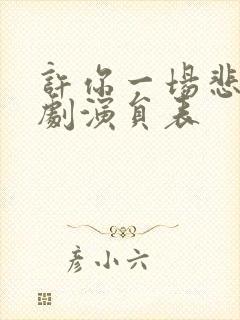 許你一場悲
劇演員表
彦小六